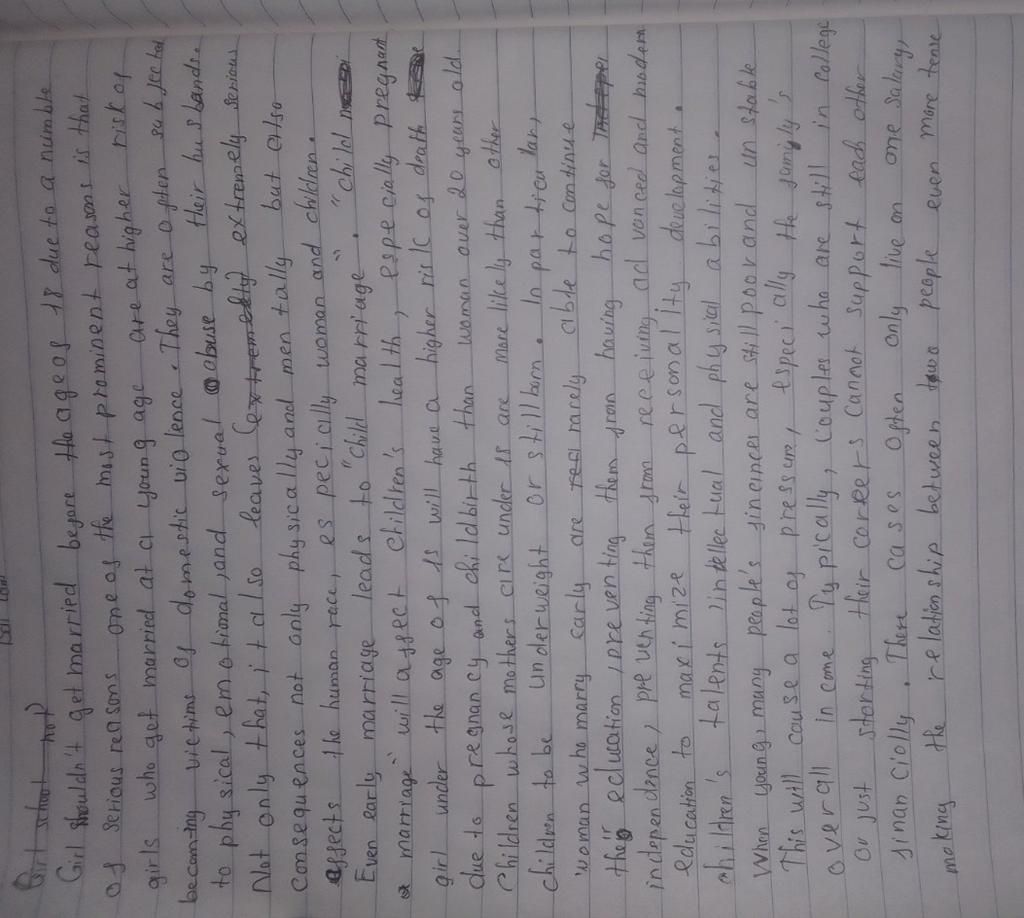 Girl school
Girl shouldn't get married before the age of 18 due to a numble
of serious reasons one of the most prominent reasons is that
girls who get married at a young age are at higher risk of
becoming victims of domestic violence. They are often subjected
to physical, emotional, and sexual abuse by their husbands.
Not only that, it also leaves extremely serious
consequences not only physically and mentally but also
affects the human race, especially woman and children.
Even early marriage leads to "child marriage". "child
marriage" will affect children's health, especially pregnant
girl under the age of 18 will have a higher risk of death
due to pregnancy and childbirth than woman over 20 years old.
Children whose mothers are under 18 are more likely than other
children to be underweight or stillborn. In particular,
woman who marry early are rarely able to continue
their education, preventing them from having hope for
independence, preventing them from receiving advanced and modern
education to maximize their personality development.
children's talents intellectual and physical abilities.
When young, many people's finances are still poor and unstable
This will cause a lot of pressure, especially the family's
overall income. Typically, couples who are still in college
or just starting their careers cannot support each other
financially. These cases often only live on one salary,
making the relationship between two people even more tense